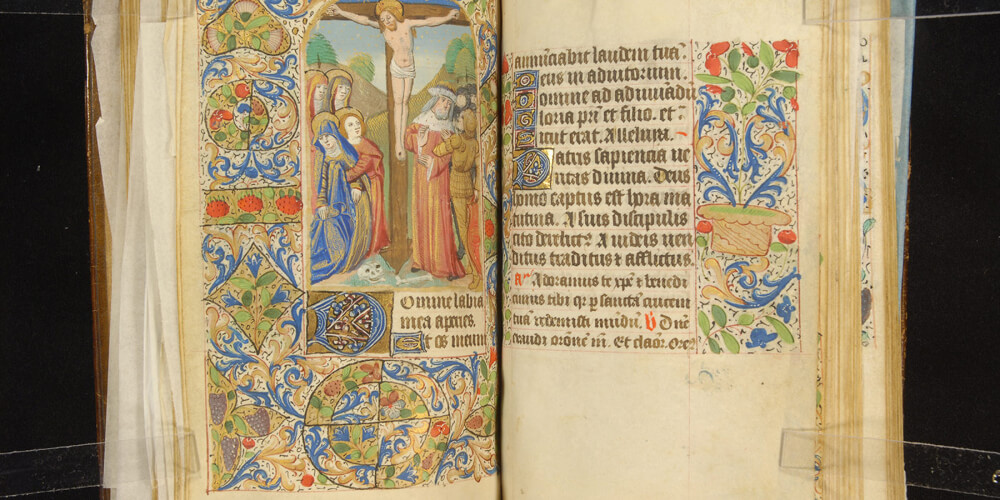 Domine labia
mea aperies.
Et os meum
annūciabit laudem tuā
Deus in adiutorium.
Domine ad adiuuādū
Gloria pr̄i et filio. et
Sicut erat. Alleluia.
Patris sapiencia ue
ritas diuina. Deus
homo captus est hora ma
tutina. A suis discipulis
cito derelict9 A iudeis uen
ditus traditus ⁊ afflictus.
a~ Adoramus te xp̄e ⁊ benedi
cimus tibi qr̄ p sanctā crucem
tuā redemisti mūdū. ℣ Dn̄e
exaudi oronē m̄. Et clāor. Ore9